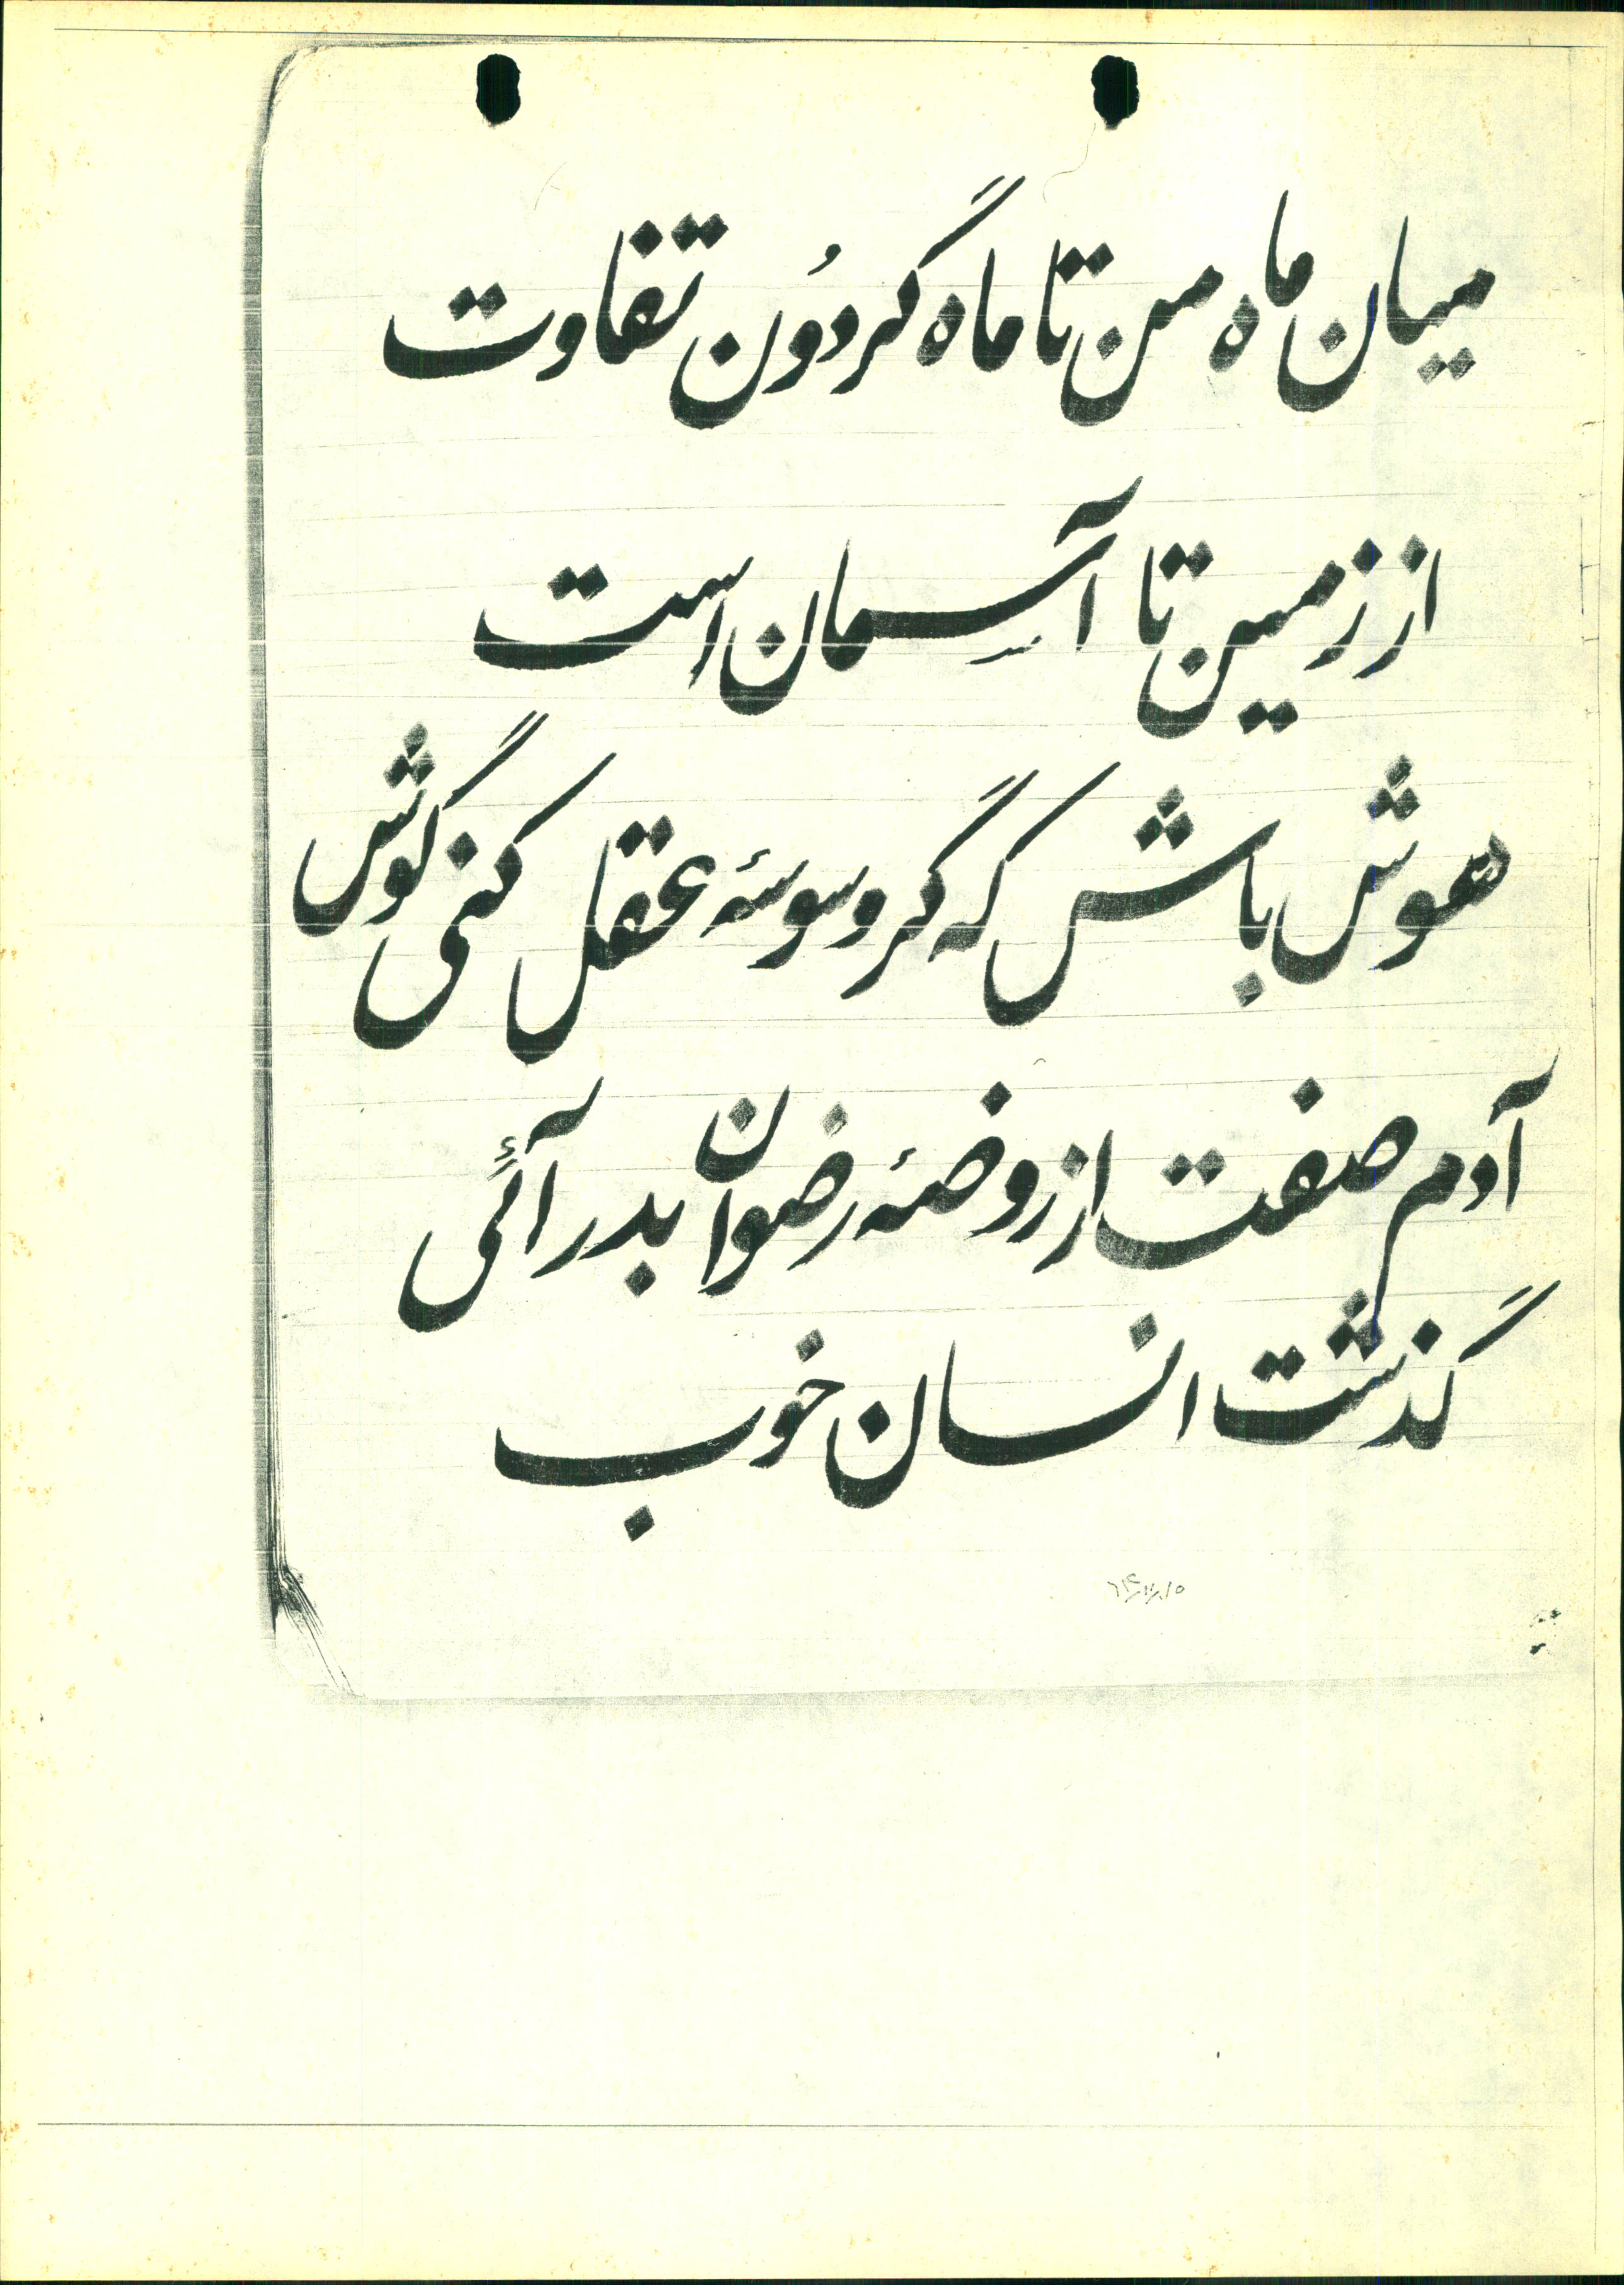 میان ماه من تا ماه گردُون تفاوت
از زمین تا آسمان است
هوش باش که گر وسوسهٔ عقل کنی گوش
آدم صفت از روضهٔ رضوان بدر آئی
گذشت انسان خوب